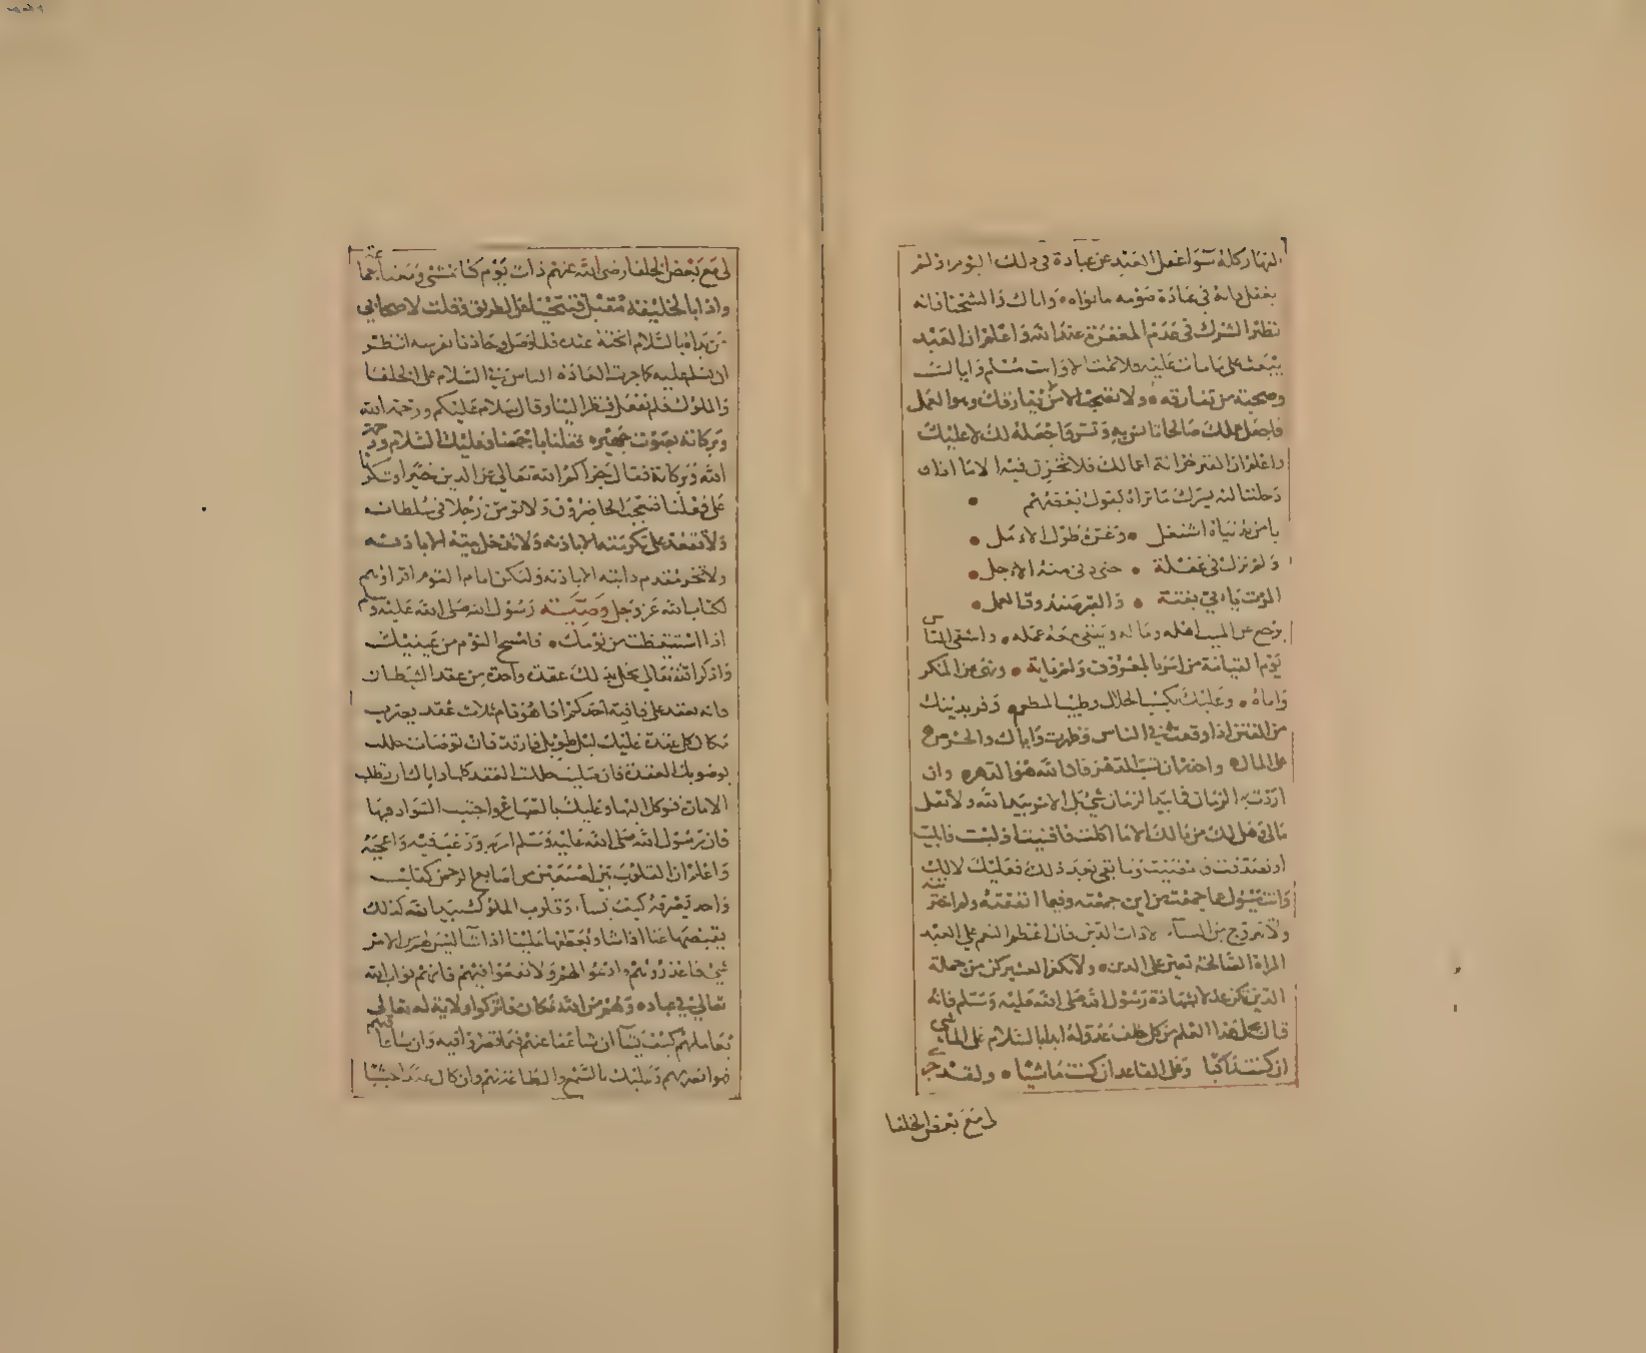 النهار كله سوا غفل العبد عن عبادة في ذلك اليوم اذ لم
يغفل فانه في عبادة صومه ما نواه واياك والشحنا فانه
نظير الشرك في عدم المغفرة عند الله واعلم ان العبد
يبعث على ما مات عليه فلا تمت الا وانت مسلم واياك
وصحبة من تفارقه ولا تصحب الا من لا يفارقك وهو العمل
فاجعل عملك صالحا تانس به وتسر واجعله لك لا عليك
واعلم ان القبر خزانة اعمالك فلا تخزن فيه الا ما اذا
دخلت اليه يسرك ما تراه يقول بعضهم
يا من بدنياه اشتغل وغره طول الامل
ولم يزل في غفلة حتى دنى منه الاجل
الموت ياتي بغتة والقبر صندوق العمل
يرجع عن الميت اهله وماله ويبقى معه عمله واشقى الناس
يوم القيامة من امر بالمعروف ولم ياته ونهى عن المنكر
واتاه وعليك بكسب الحلال وطيب المطعم وفر بدينك
من الفتن اذا وقعت في الناس وظهرت واياك والحرص
على المال واحذر ان تسب الدهر فان الله هو الدهر وان
اردت به الزمان فما بيد الزمان شي بل الامر بيد الله ولا تقل
مالي هل لك من مالك الا ما اكلت فافنيت او لبست فابليت
او تصدقت فامضيت وما بقي بعد ذلك فعليك لا لك
وانت مسؤول عما جمعته من اين جمعته وفيما انفقته ولم اخترته
ولا تتزوج من النساء الا ذات الدين فان اعظم النعم على العبد
المراة الصالحة تعين على الدين ولا تكفر العشير كن من حملة
الدين تكن عدلا بشهادة رسول الله صلى الله عليه وسلم فانه
قال يحمل هذا العلم من كل خلف عدوله ابدا بالسلام على الماشي
ان كنت راكبا وعلى القاعد ان كنت ماشيا ولقد جرى
لي مع بعض الخلفا
لي مع بعض الخلفا رضى الله عنهم ذات يوم كنا نمشي ومعنا جماعة
واذا بالخليفة مقبل فتنحينا عن الطريق وقلت لاصحابي
من بداه بالسلام اخته عنده فلما وصل وحاذنا بفرسه انتظر
ان نسلم عليه كما جرت العادة الناس في السلام على الخلفا
والملوك فلم نفعل فنظر الينا وقال سلام عليكم ورحمة الله
وبركاته بصوت جهير فقلنا باجمعنا وعليك السلام ورحمة
الله وبركاته فقال جزاكم الله تعالى عن الدين خيرا وشكرنا
على فعلنا فتعجب الحاضرون ولا تؤمن رجلا في سلطانه
ولا تقعد على تكرمته الا باذنه ولا تدخل بيته الا باذنه
ولا تخر مقدم دابته الا باذنه وليكن امام القوم اقراوهم
لكتاب الله عز وجل وصية رسول الله صلى الله عليه وسلم
اذا استيقظت من نومك فامسح النوم من عينيك
واذكر الله تعالى يحل بذلك عقدة واحدة من عقد الشيطان
فانه يعقد على قافية احدكم اذا هو نام ثلاث عقد يضرب
مكان كل عقدة عليك ليل طويل فارقد فان توضات حللت
بوضويك العقدة فان صليت حللت العقد كلها واياك ان تطلب
الامارة فتوكل اليها وعليك بالصباغ واجتنب السواد فيها
فان رسول الله صلى الله عليه وسلم امر به ورغب فيه واعجبه
واعلم ان القلوب بين اصبعين من اصابع الرحمن كقلب
واحد يصرفه كيف يشاء وقلوب الملوك بيد الله كذلك
يقبضها عنا اذا شا ويعطفها علينا اذا شا ليس لهم من الامر
شي فاعذروهم وادعوا لهم ولا تقعوا فيهم فانهم نواب الله
تعالى في عباده وهم من الله بمكان فاتركوا ولاية له تعالى
يعاملهم كيف يشا ان شا عفا عنهم فيما قصروا فيه وان شا عاقبهم
فهو ابصر بهم وعليك بالسمع والطاعة لهم وان كان عبدا حبشيا